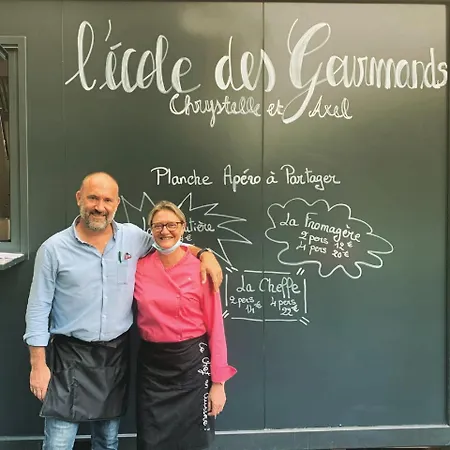 l'école des Gourmands
Chrystelle et Axel
Planche Apéro à Partager
La Fromagère
2 pers 12 €
4 pers 20 €
La Cheffe
2 pers
14€
22€